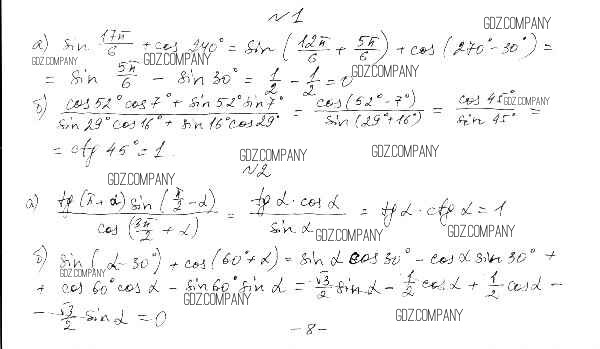 N1
GDZ.COMPANY
а) sin 17π/6 + cos 240° = sin (12π/6 + 5π/6) + cos (270° - 30°) =
GDZ.COMPANY GDZ.COMPANY
= sin 5π/6 - sin 30° = 1/2 - 1/2 = 0
GDZ.COMPANY
б) (cos 52° cos 7° + sin 52° sin 7°)/(sin 29° cos 16° + sin 16° cos 29°) = cos(52° - 7°)/sin(29° + 16°) = cos 45°/sin 45° =
GDZ.COMPANY
= ctg 45° = 1
GDZ.COMPANY GDZ.COMPANY
N2
GDZ.COMPANY
а) (tg (π + α) sin (π/2 - α))/(cos (3π/2 + α)) = (tg α · cos α)/(sin α) = tg α · ctg α = 1
GDZ.COMPANY GDZ.COMPANY
б) sin (α - 30°) + cos (60° + α) = sin α cos 30° - cos α sin 30° +
GDZ.COMPANY GDZ.COMPANY
+ cos 60° cos α - sin 60° sin α = √3/2 sin α - 1/2 cos α + 1/2 cos α -
GDZ.COMPANY
- √3/2 sin α = 0
GDZ.COMPANY
- 8 -